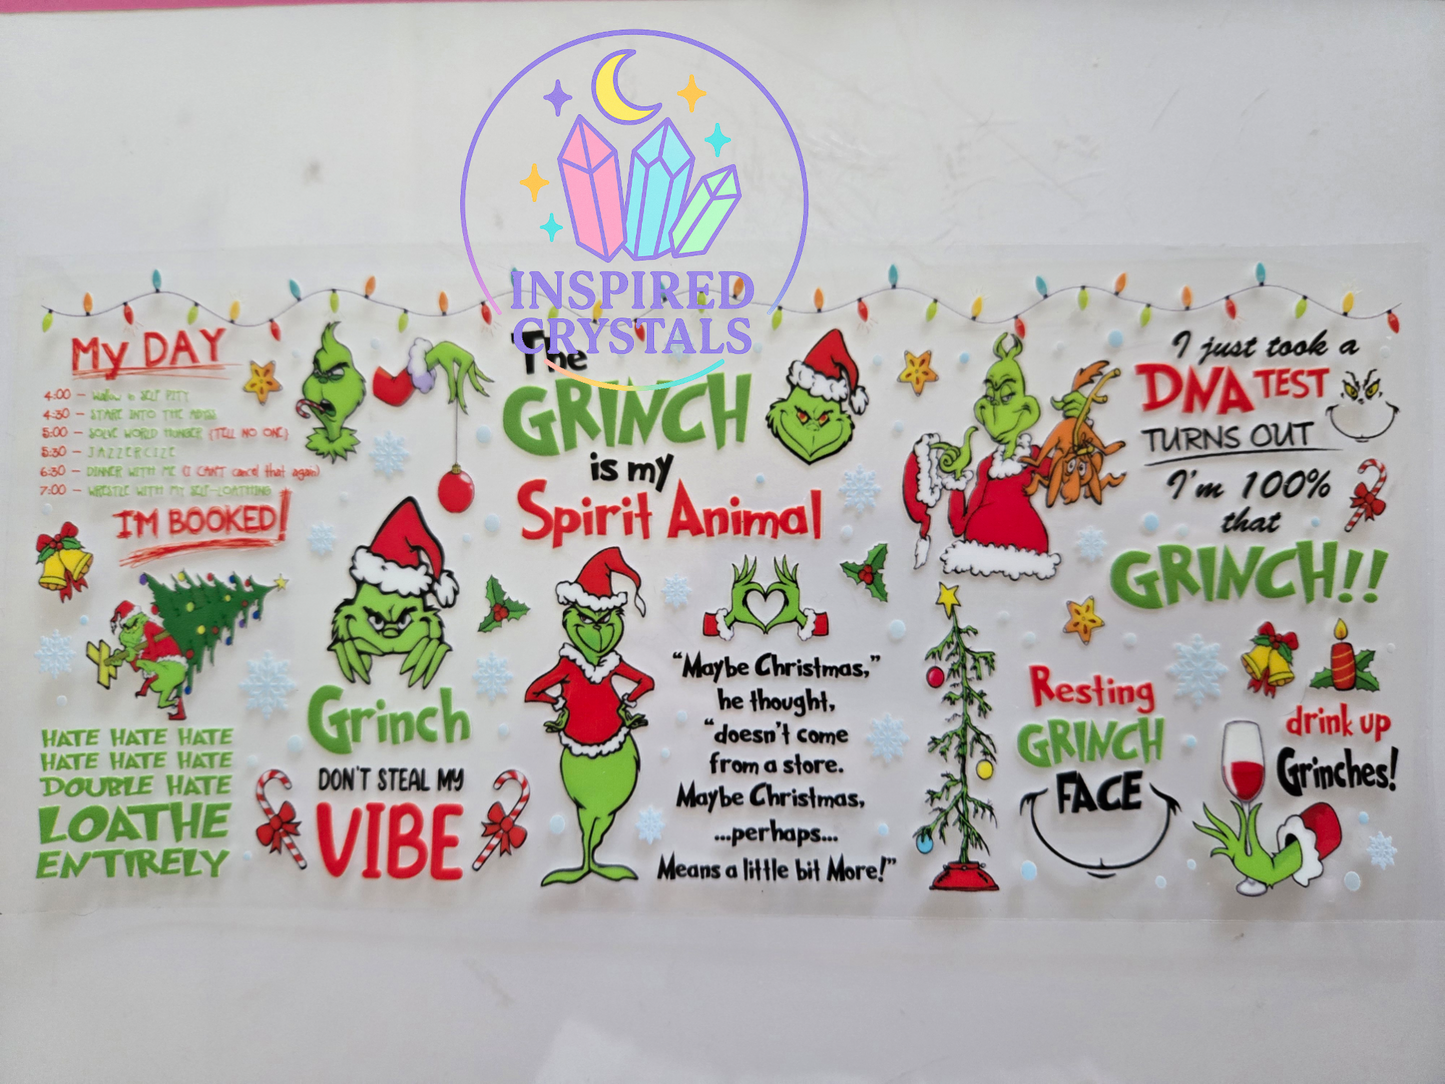 INSPIRED
CRYSTALS
My DAY
4:00 – Wallow in SELF PITY
4:30 – STARE INTO THE ABYSS
5:00 – SOLVE WORLD HUNGER (TELL NO ONE)
5:30 – JAZZERCIZE
6:30 – DINNER WITH ME (I CAN'T cancel that again)
7:00 – WRESTLE WITH MY SELF-LOATHING
I'M BOOKED!
HATE HATE HATE
HATE HATE HATE
DOUBLE HATE
LOATHE
ENTIRELY
Grinch
DON'T STEAL MY
VIBE
The
GRINCH
is my
Spirit Animal
“Maybe Christmas,”
he thought,
“doesn't come
from a store.
Maybe Christmas,
...perhaps...
Means a little bit More!”
I just took a
DNA TEST
TURNS OUT
I'm 100%
that
GRINCH!!
Resting
GRINCH
FACE
drink up
Grinches!